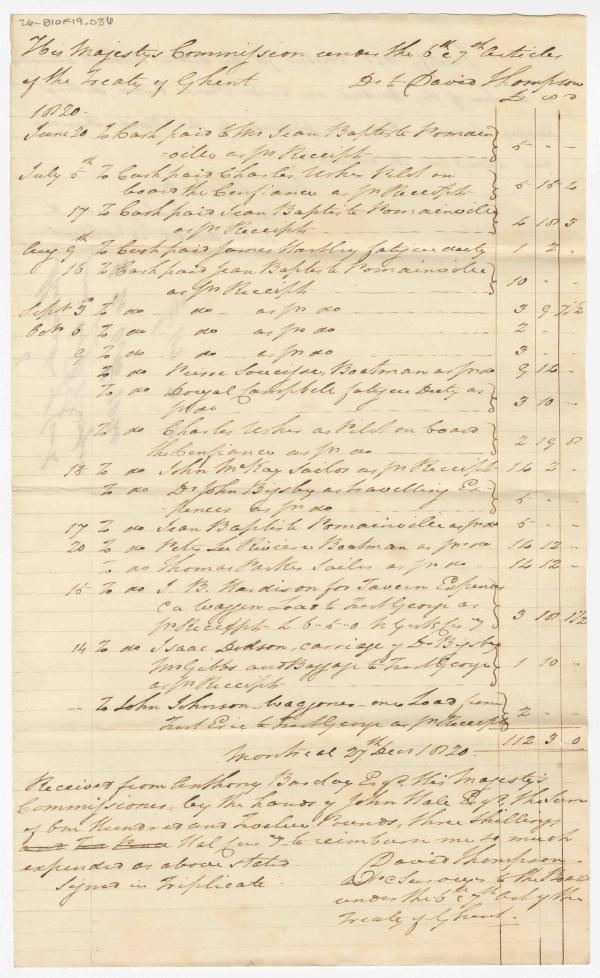 26-B10F19.036
His Majestys Commission under the 6th & 7th Articles
of the Treaty of Ghent Dr to David Thompson
1820. £ s D
June 20 To Cash paid to Mr Jean Baptiste Romain
-ville as pr Receipt 5 " -
July 5th To Cash paid Charles Usher Pilot on
board the Confiance as pr Receipt 5 15 2
17 To Cash paid Jean Baptiste Romainville
as pr Receipt 4 18 3
Aug 9th To Cash paid James Hartley fatigue duty 1 2 -
16 To Cash paid Jean Baptiste Romainville
as pr Receipt 10 - -
Sept 3d To do do as pr do 3 9 7 1/2
Octr 6 To do do as pr do 2 " -
9 To do do as pr do 3 " -
To do Pierre Boatman as pr do 9 14 -
To do Dougal Campbell fatigue Duty as
pr do 3 10 -
To do Charles Usher as Pilot on board
the Confiance as pr do 2 19 8
15 To do John McKay Sailor as pr Receipt 14 2 -
To do Dr John Bigsby as travelling Ex-
pences as pr do 5 - -
17 To do Jean Baptiste Romainville as pr do 5 - -
20 To do Boatman as pr do 14 12 -
To do Thomas Parker Sailor as pr do 14 12 -
15 To do J. B. Hardison for Tavern Expences
& a Waggon Load to Fort George as
pr Receipt £ 6-6-0 3 18 1 1/2
14 To do Isaac Dodson, carriage of Dr Bigsby
Mr Gibbs and Baggage to Fort George
as pr Receipt 1 10 -
-- To John Johnson Waggoner one Load from
Fort Erie to Fort George as pr Receipt 2 - -
Montreal 27th Decr 1820. 112 3 0
Received from Anthony Barclay Esqr. His Majestys
Commissioner, by the hands of John Hale Esqr. the Sum
of One Hundred and Twelve Pounds, three Shillings
Hal Curcy to reimburse me so much
expended as above stated.
Signed in Triplicate. David Thompson
Surveyor to the Board
under the 6th & 7th Art of the
Treaty of Ghent.